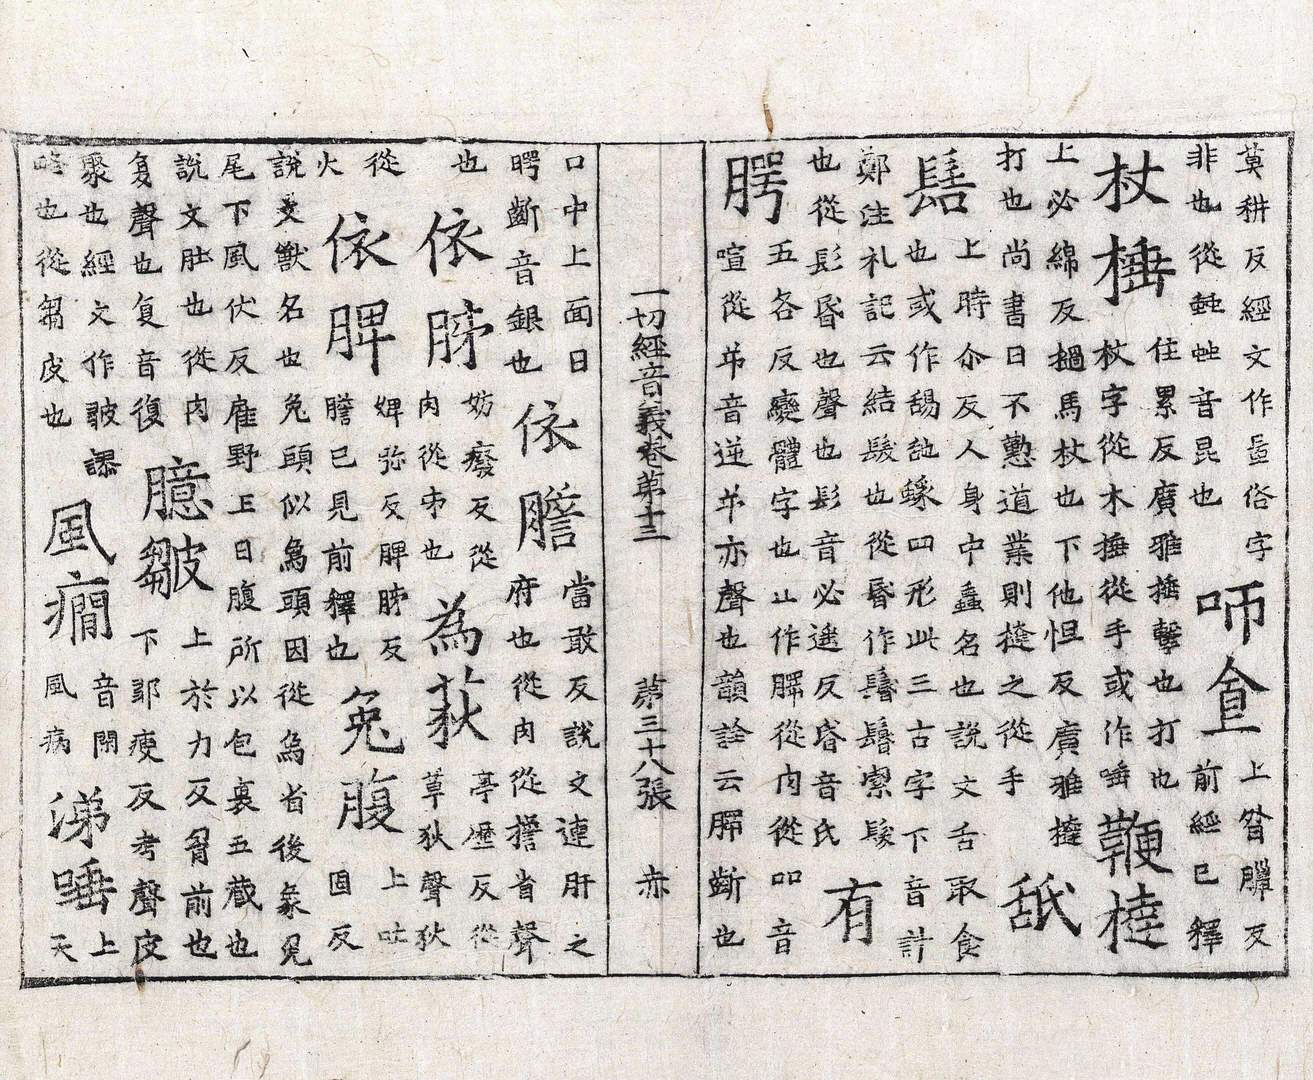 莫耕反經文作䖟俗字
非也從䖵䖵音昆也
咂食
上咎臘反
前經已釋
杖棰
隹累反廣雅捶擊也打也
杖字從木捶從手或作唾
鞭撻
上必綿反撾馬杖也下他怛反廣雅撻
打也尚書曰不懃道業則撻之從手
舐
髻
上時尒反人身中蠱名也說文舌取食
也或作舓 四形此三古字下音計
鄭注礼記云結髮也從髻作鬠鬠索髮
也從髟昏也聲也髟音必遙反昏音氏
有
腭
五各反變體字也 作䐸從肉從吅音
喧從屰音逆屰亦聲也韻詮云䐸齗也
一切經音義卷第十三 第三十八張 赤
口中上面曰
腭齗音銀也
依膽
當敢反說文連肝之
府也從肉從擔省聲
也
依胇
妨癈反從
肉從巿也
為荻
亭歷反從
草狄聲狄
從
火
依脾
婢弥反脾胇反
膽已見前釋也
兔腹
上吐
固反
說文獸名也兔頭似㲋頭因從㲋省後象兒
尾下風伏反 野王曰腹所以包裹五藏也
說文肚也從肉
复聲也复音復
臆皺
上於力反胷前也
下鄒瘦反考聲皮
聚也經文作 謬
略也從芻皮也
風癎
音閑
風病
涕唾
上
天